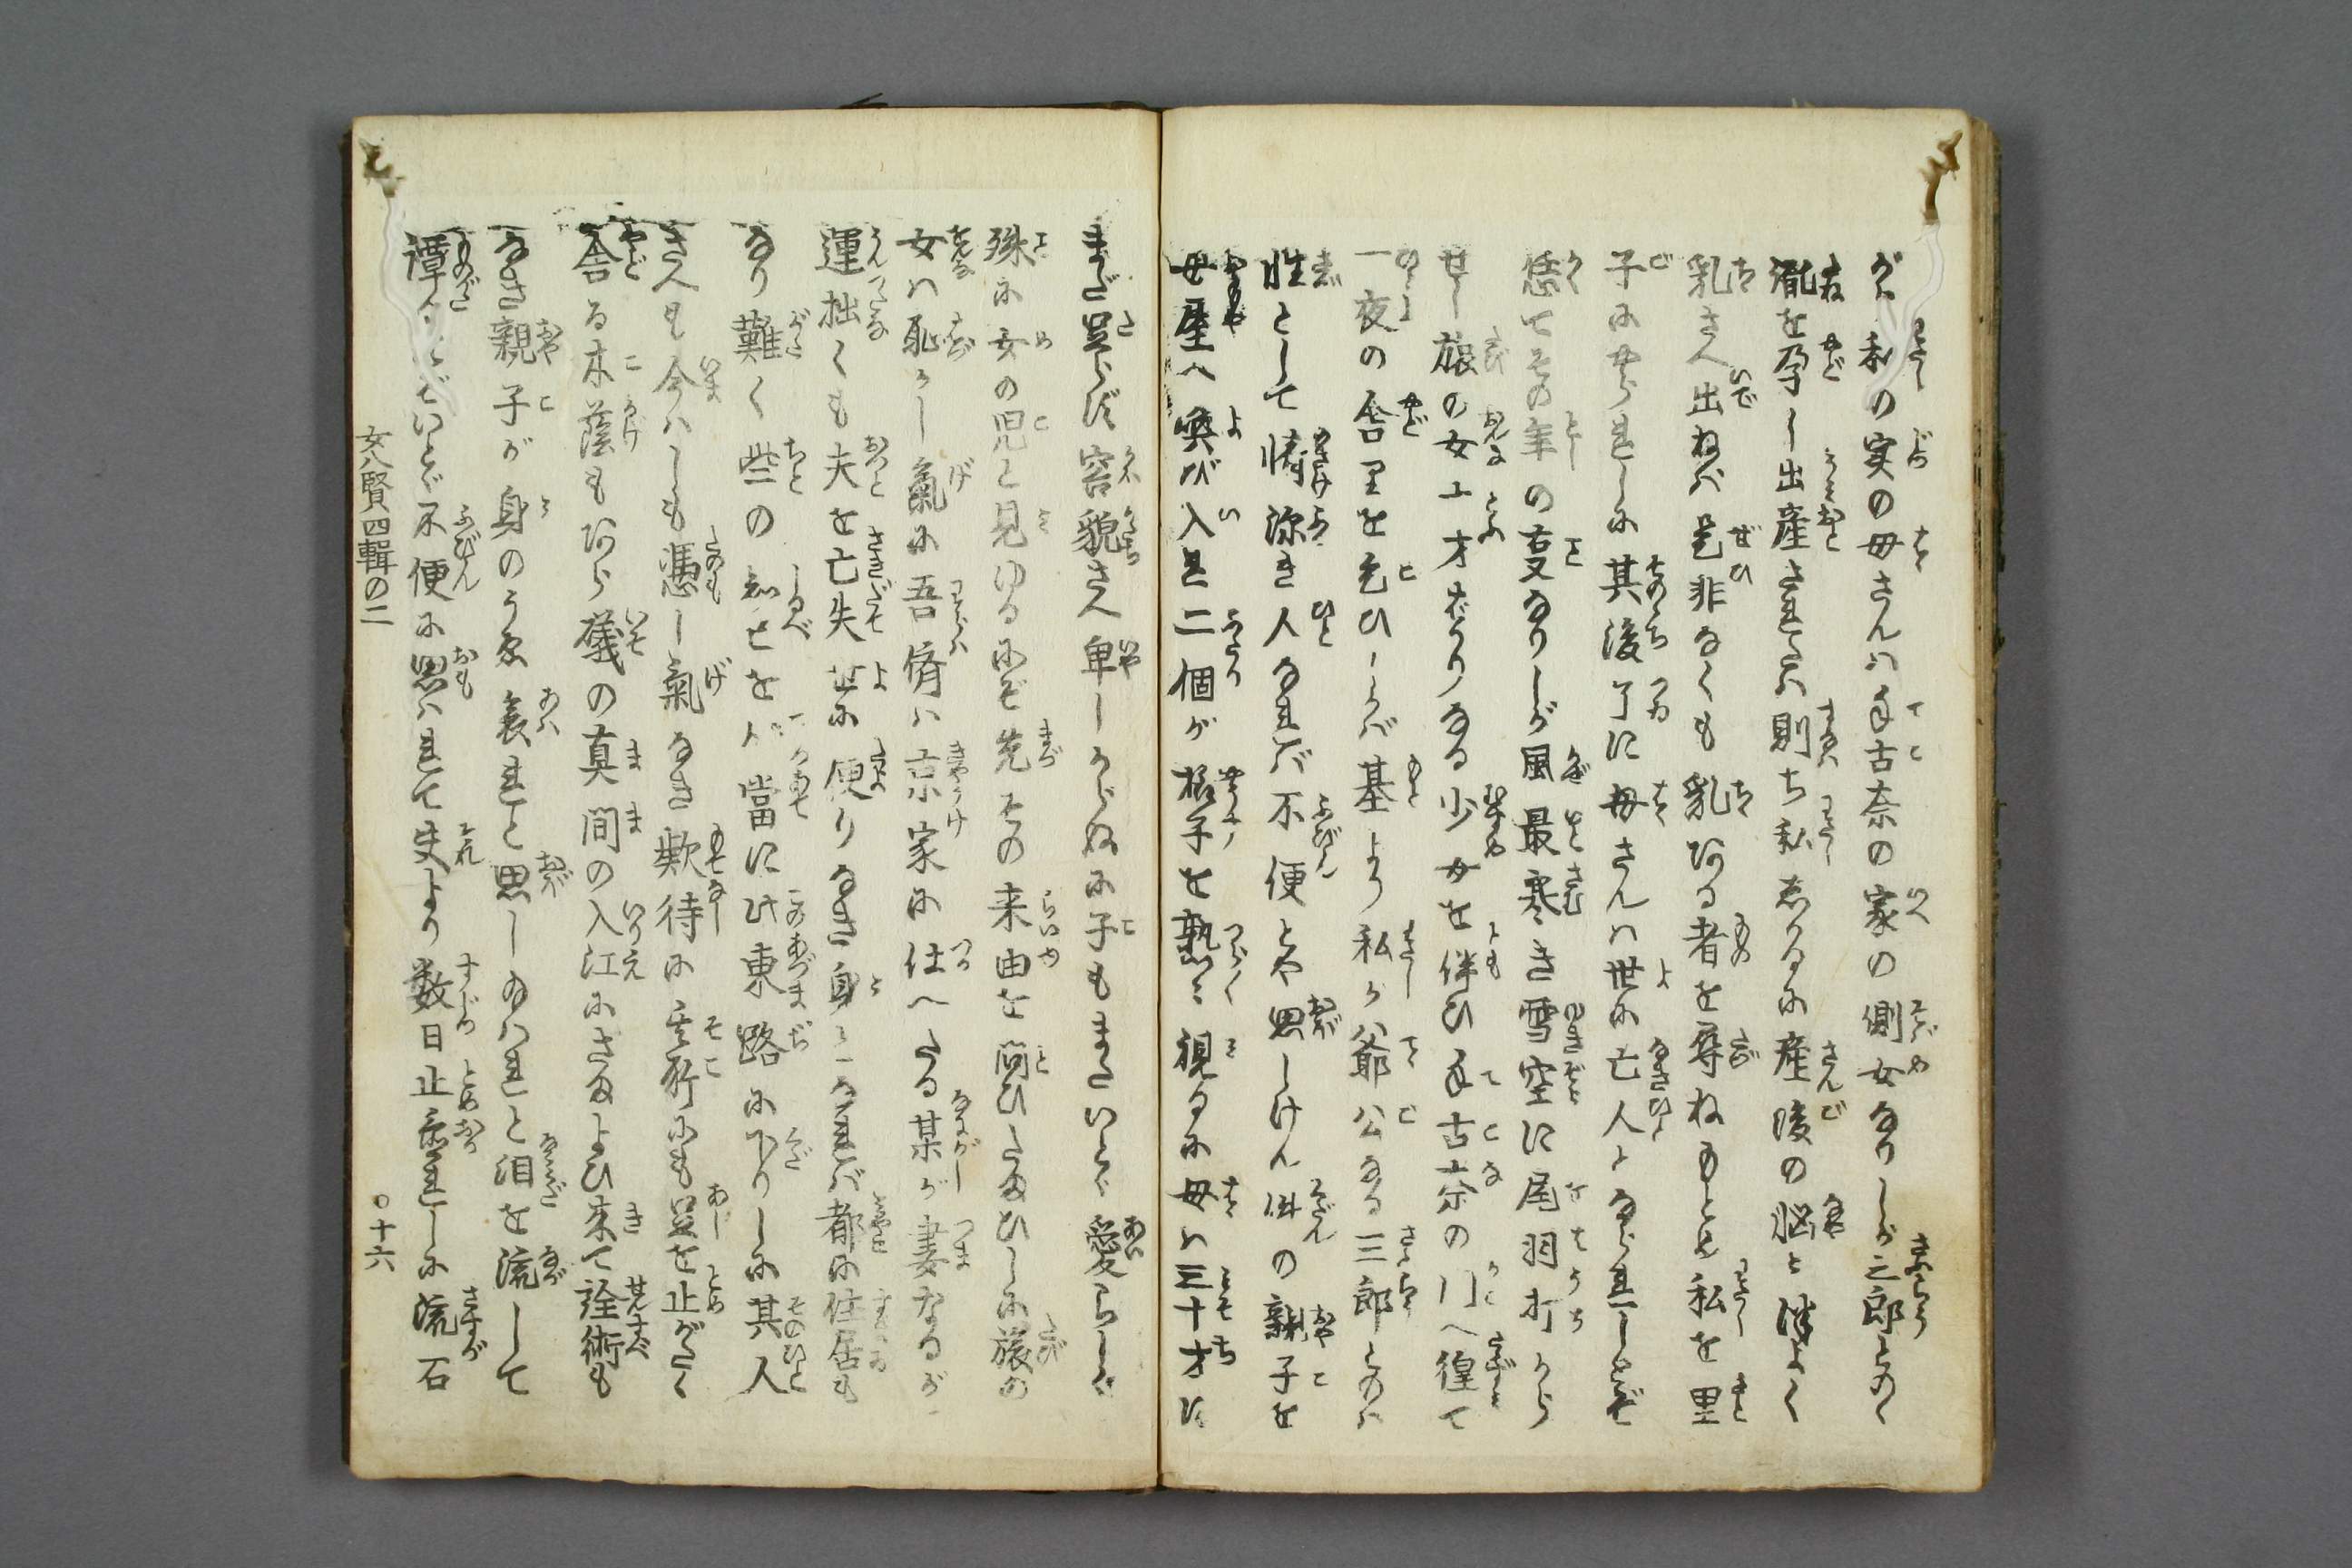 が私の実の母さんハ手古奈の家の側女なりしが三郎とのゝ
胤を孕し出産されたハ則ち私志かるに産後の脳と滞よく
乳さへ出ねバ是非なくも乳ある者を尋ねもとめ私を里
子にやられしに其後了に母さんハ世に亡人となられしとぞ
恁てその年の夏なりしが風最寒き雪空に尾羽打からせし
旅の女十才ばかりなる少女を伴ひ手古奈の門へ徨て
一夜の舎里を乞ひしかバ基より私が爺公なる三郎とのハ
性として情深き人なれバ不便とや思しけん件の親子を
母屋へ喚び入れ二個が様子を熟々視るに母ハ三十才に
まだ足らず容貌さへ卑しからぬに子もまたいとゞ愛らしく
殊に女の児と見ゆるにぞ先その来由を問ひたまひしに旅の
女ハ恥かし氣に吾儕ハ京家に仕へたる某が妻なるが
運拙くも夫を亡失世に便りなき身となれバ都の住居も
なり難く些の知己をバ當にひ東路に下りしに其人
さへも今ハしも憑し氣なき欺待に其所にも足を止がたく
舎る木蔭もあら礒の真間の入江にさまよひ来て詮術も
なき親子が身のうゑ哀れと思しめハれと泪を流して
譚るにぞいとゞ不便に思ハれて夫より数日止宿れしに流石
女八賢四輯の二
〇十六